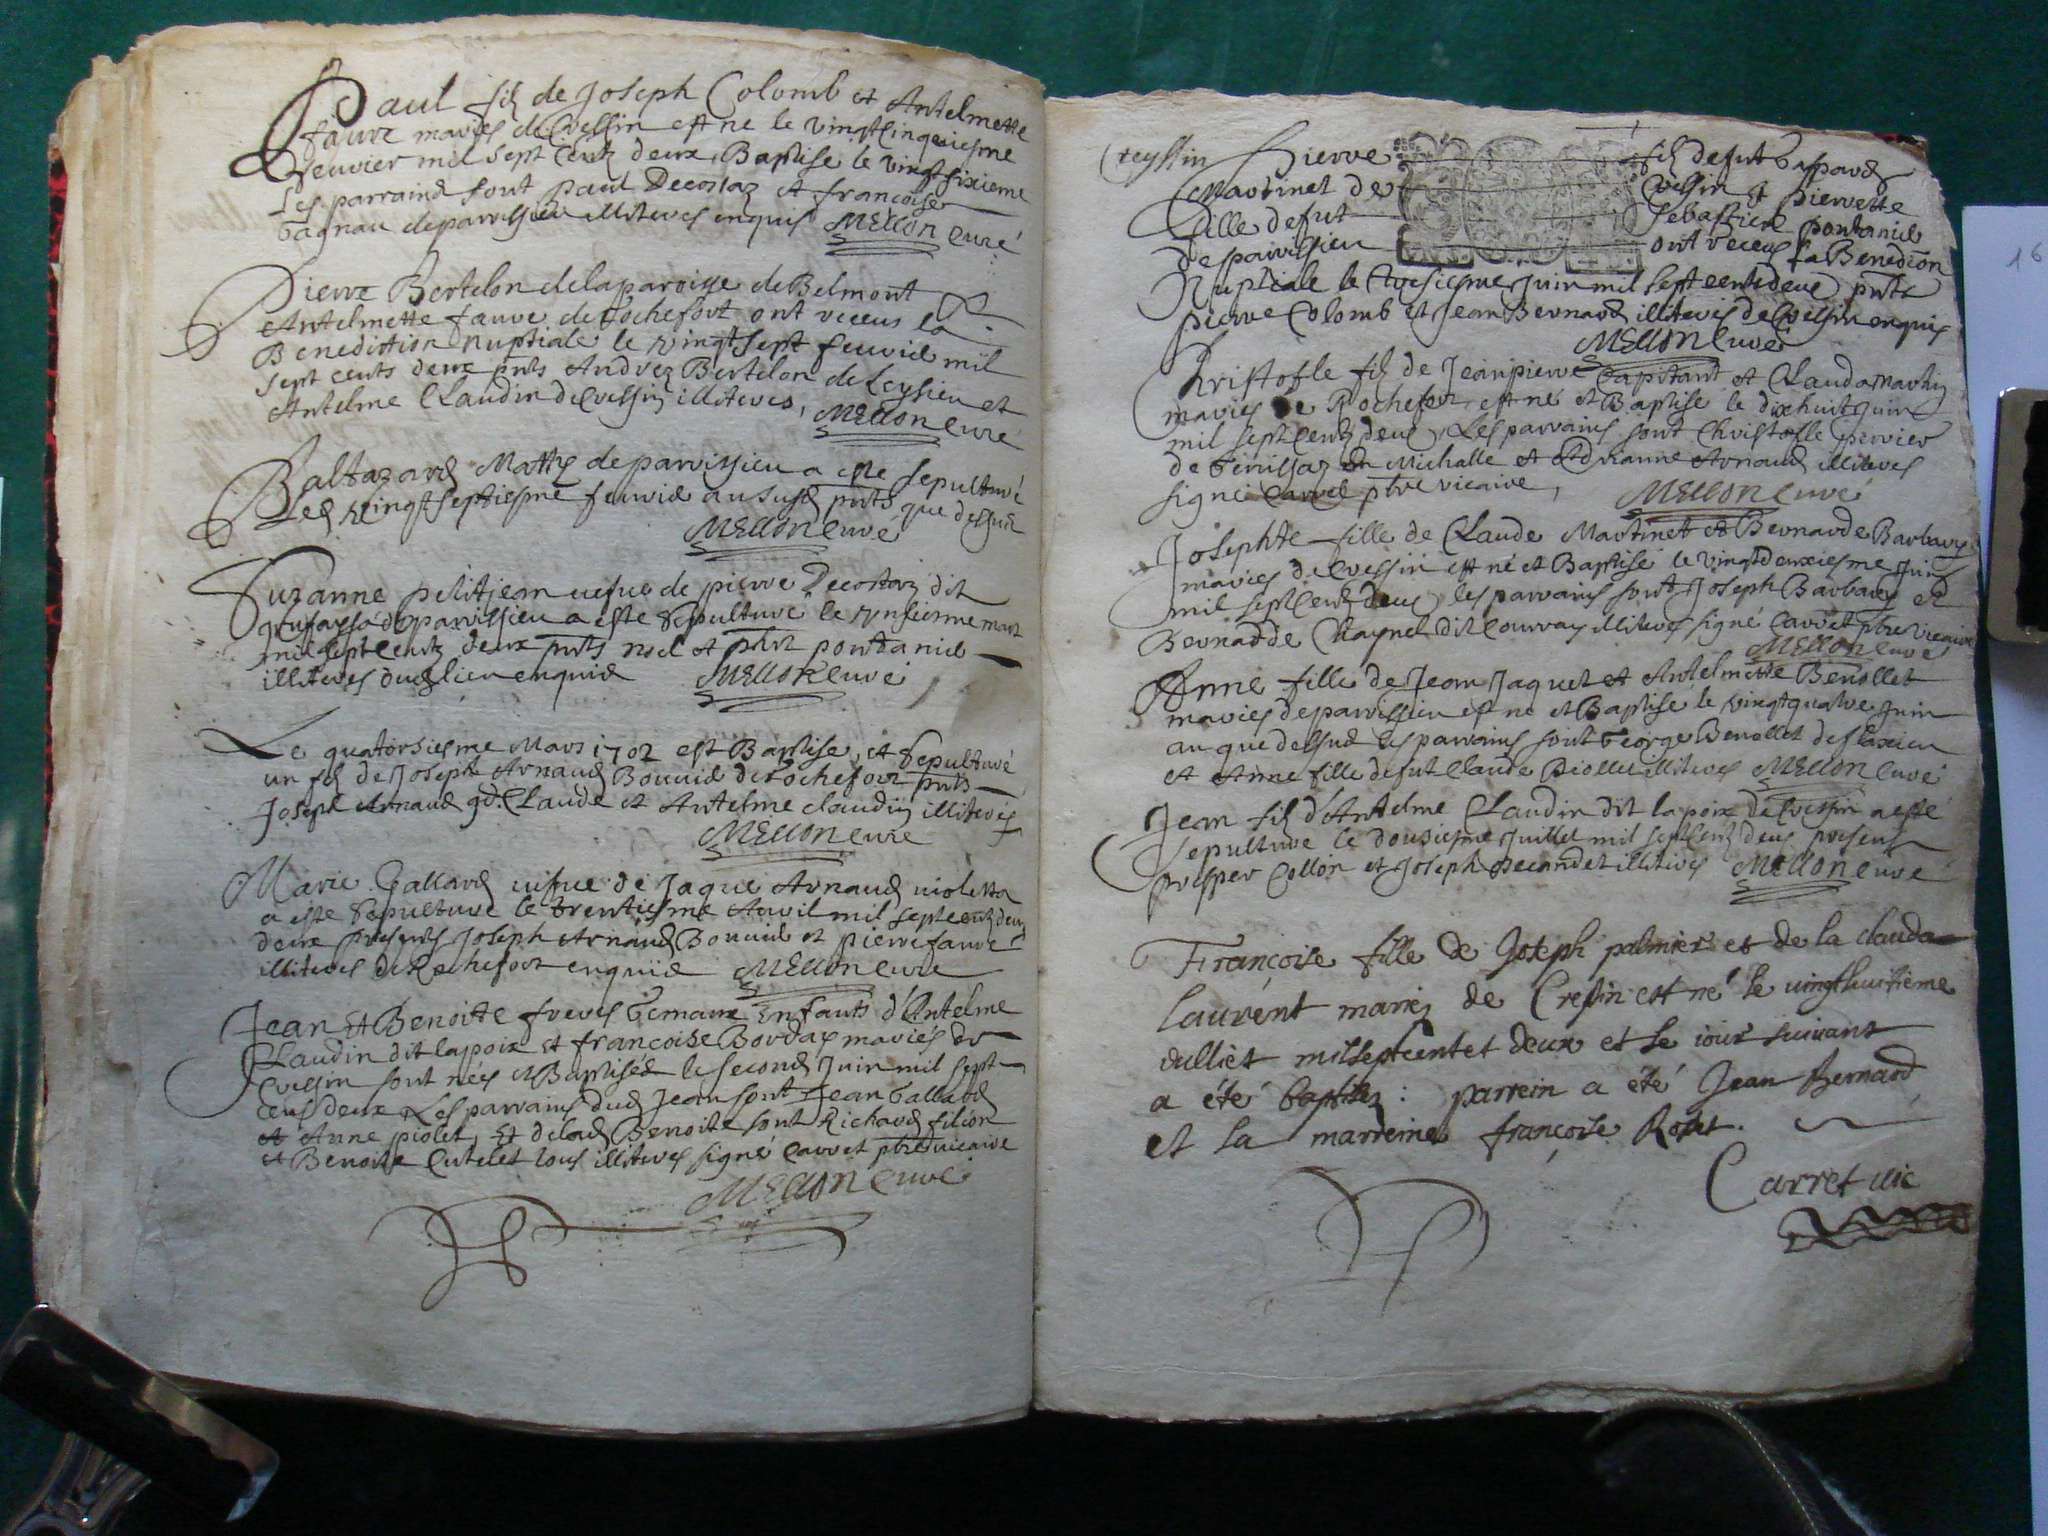 Paul fils de Joseph Colomb et Antelmette
faure mariés de Cressin est ne le vingtcinquiesme
feuvrier mil sept cents deux, Baptise le vingtsixieme
Les parraind sont paul Decostaz et francoise
gagnau de parvissieu illiteres enquis MELLON Curé
Pierre Bertelon de la paroisse de Belmont
Antelmette faure de Rochefort ont receus la
Benediction Nuptiale le vingt sept feuvrié mil
sept cents deux pnts Andrez Bertelon de Leysieu et
Antelme Claudin de Cressin illiteres, MELLON Curé
Baltazard Matty de parvissieu a este sepulturé
Led vingtseptiesme feuvrié an susd pnts que dessus
MELLON Curé
Suzanne petitjean vefue de pierre Decostaz dit
de parvissieu a este sepulture le unsiesme mars
mil sept cents deux pnts noel et pontanié
illiteres dud lieu enquis MELLON Curé
Le quatorsiesme Mars 1702 est Baptise, et sepulturé
un fils de Joseph Arnaud Bouuié de Rochefort pnts
Joseph Arnaud Claude et Antelme Claudin illiteres
MELLON Curé
Marie Gallard vefue de Jaque Arnaud violetta
a este sepulture le trentiesme Auril mil sept cents deux
deux presents Joseph Arnaud Bouuié et pierre faure
illiteres de Rochefort enquis MELLON Curé
Jean et Benoite freres gemaux Enfants d'Antelme
Claudin dit lapoix et francoise Borday mariés de
Cressin sont nées et Baptisés le second Juin mil sept
cens deux, Les parrains dud Jean sont Jean Gallard
et Anne piolet, Et de lad Benoite sont Richard filion
et Benoite Cutelet tous illiteres signé Carret pbre vicaire
MELLON Curé
Creyssin Pierre fils de fut Gaspard
Martinet de Cressin et pierrette
fille de fut Sebastien pontanié
de parvissieu ont receus la Benedion
Nuptiale le troisiesme Juin mil sept cents deux pnts
pierre Colomb et Jean Bernard illiteres de Cressin enquis
MELLON Curé
Christofle fils de Jeanpierre Capitant et Clauda Martin
mariés de Rochefort est né et Baptise le dixhuit Juin
mil sept cents deux, Les parrains sont Christofle perrier
de Michalle et Adrianne Arnaud illiteres
signé Carret pbre vicaire, MELLON Curé
Josephte fille de Claude Martinet et Bernarde Barbary
mariés de Cressin est né et Baptisé le vingtdeuxiesme Juin
mil sept cents deux, les parrains sont Joseph Barbary et
Bernadde Chaynel dit Courray illiteres signé Carret pbre vicaire
MELLON Curé
Anne fille de Jean Jaquet et Antelmette Benollet
mariés de parvissieu est né et Baptisé le vingtquatre Juin
an que dessus les parrains sont George Benollet de flaxieu
et Anne fille de fut Claude Piollet illiteres MELLON Curé
Jean fils d'Antelme Claudin dit lapoix de Cressin a esté
sepulture le dousiesme Juillet mil sept cents deux presents
prosper Collon et Joseph Decandet illiteres MELLON Curé
Françoise fille de Joseph palmier et de la clauda
laurent mariez de Cressin est né le vingthuitieme
Julliet mil sept cent et deux et le iour suivant
a été baptisez : parrein a été Jean Bernard,
et la marreine françoise Rosset.
Carret vic
16